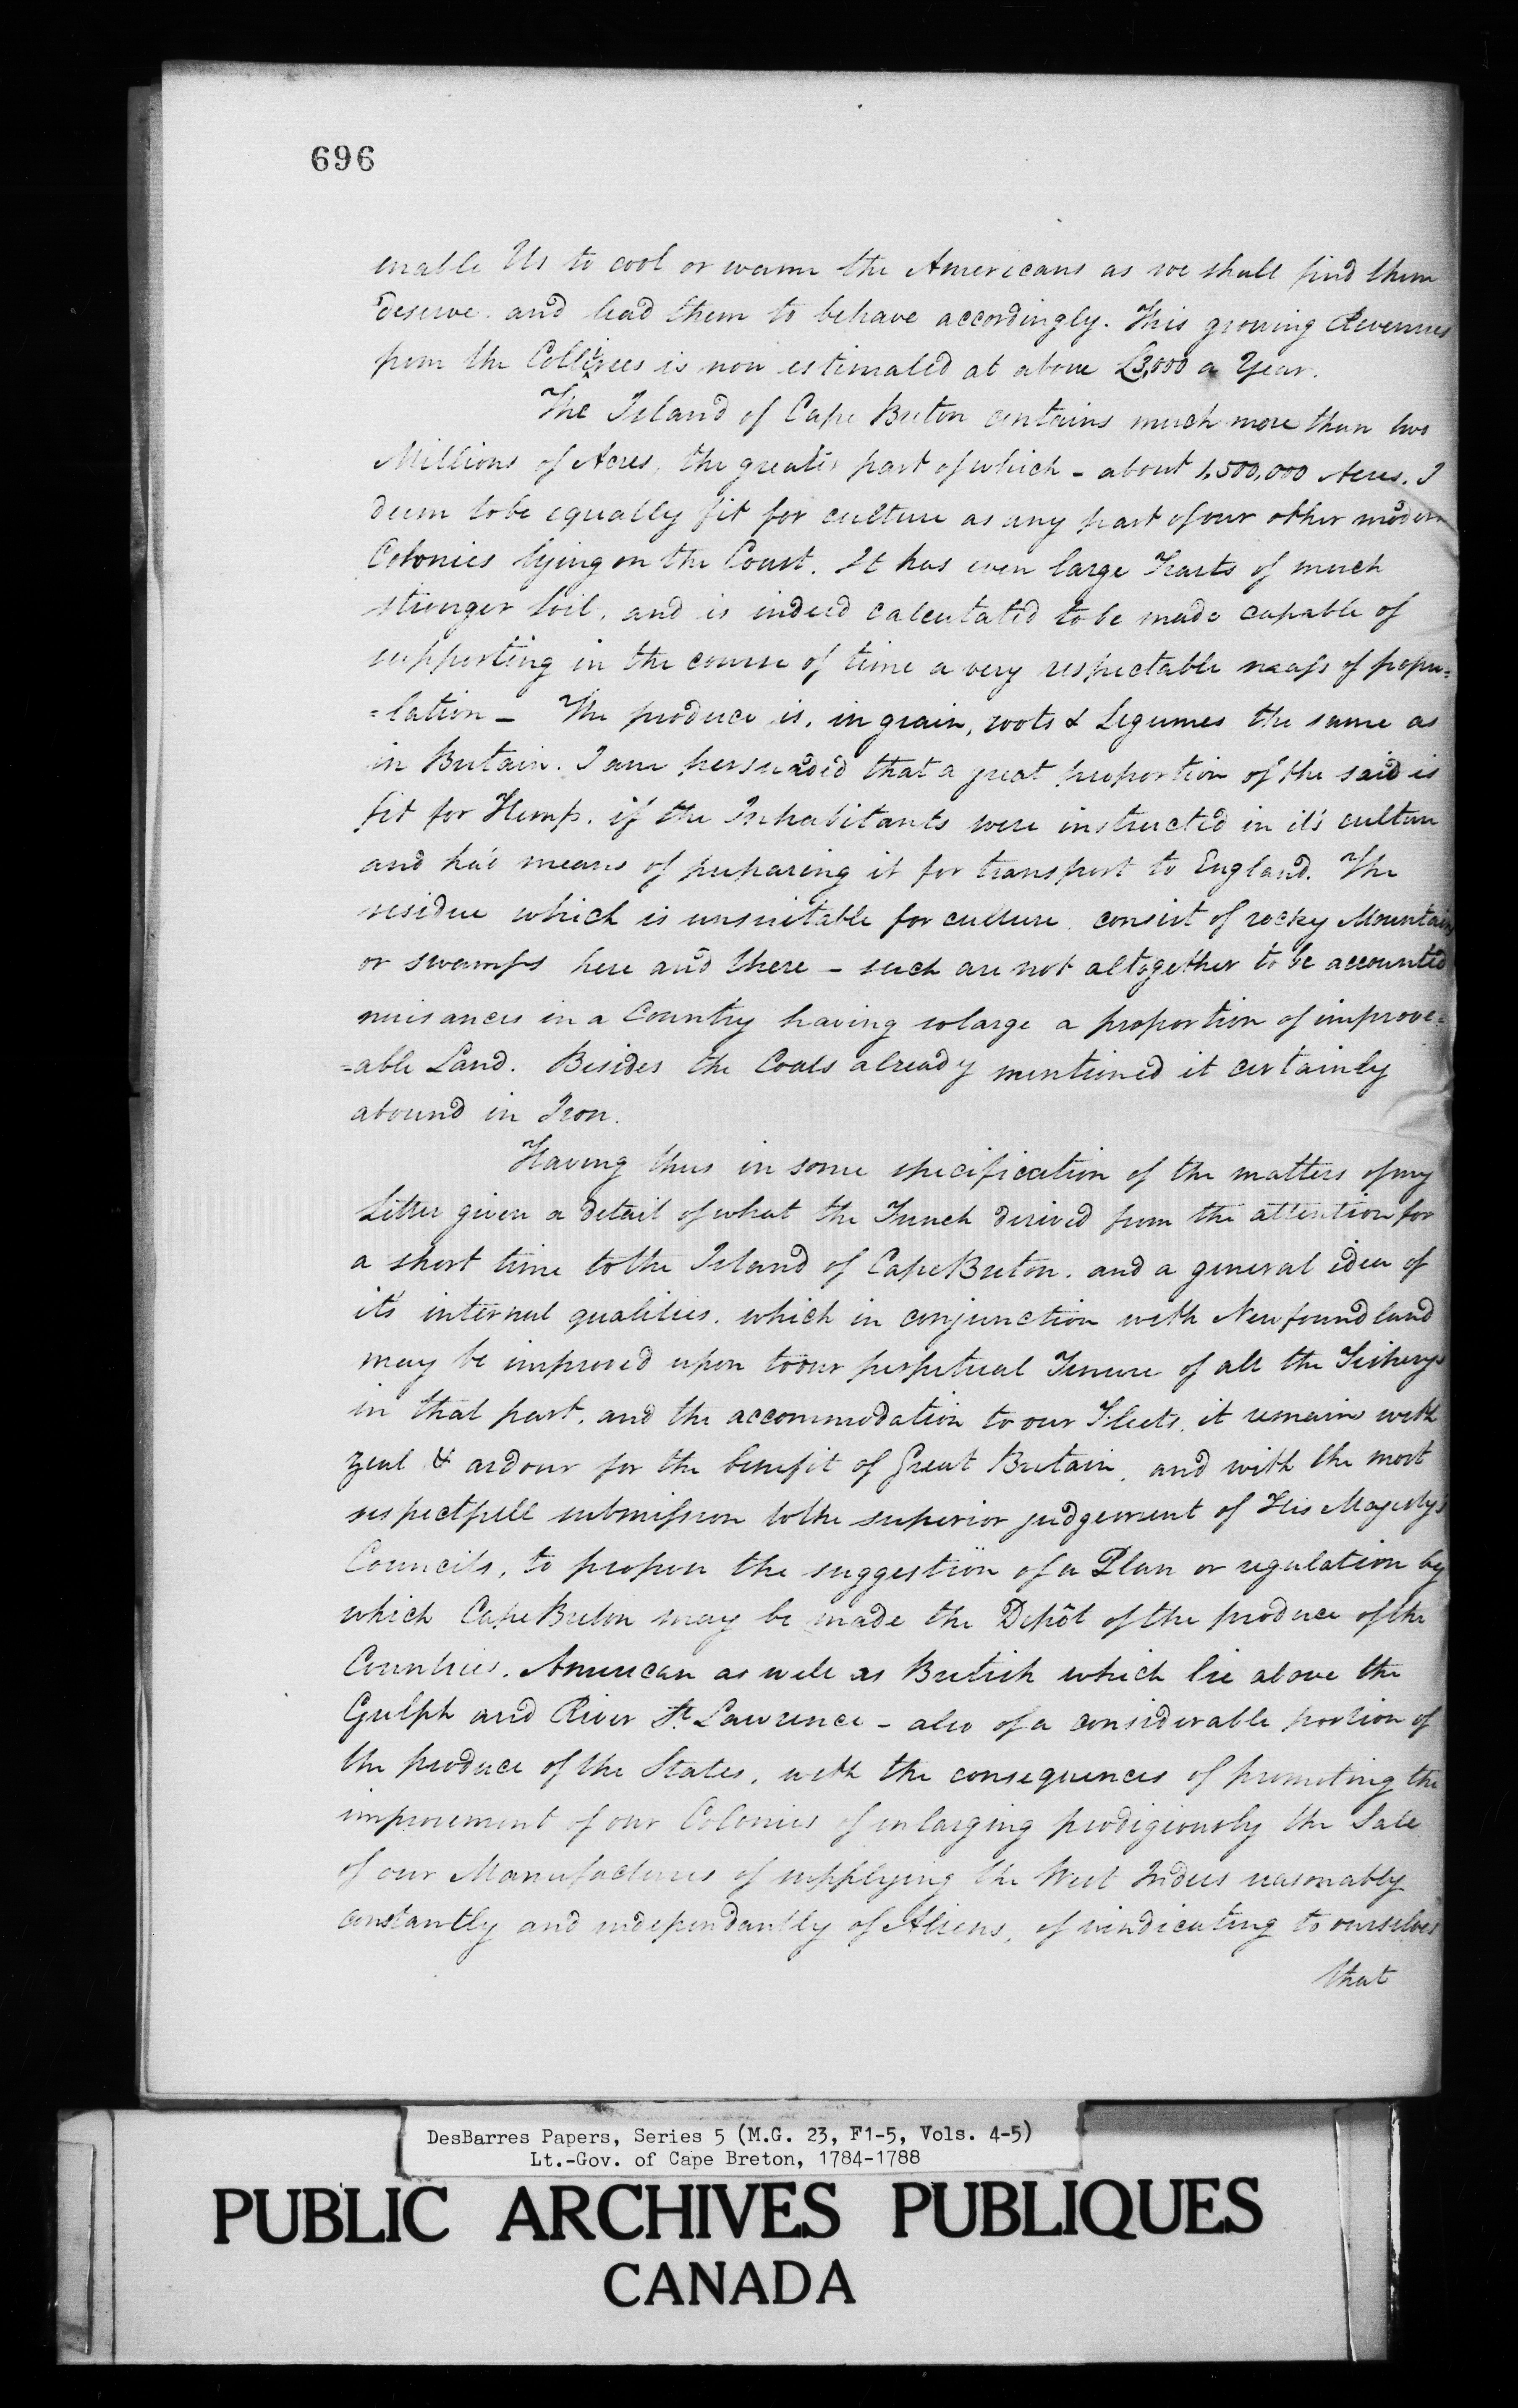 696
enable Us to cool or warm the Americans as we shall find them
deserve. and lead them to behave accordingly. This growing Revenues
from the Collieries is now estimated at above £3,000 a Year.
The Island of Cape Breton contains much more than two
Millions of Acres, the greater part of which - about 1,500,000 Acres. I
deem to be equally fit for culture as any part of our other modern
Colonies lying on the Coast. It has even large Tracts of much
stronger soil, and is indeed calculated to be made capable of
supporting in the course of time a very respectable mass of popu=
=lation - The produce is, in grain, roots & Legumes the same as
in Britain. I am persuaded that a great proportion of the said is
fit for Hemp. if the Inhabitants were instructed in it's culture
and had means of preparing it for transport to England. The
residue which is unsuitable for culture, consist of rocky Mountains
or swamps here and there - such are not altogether to be accounted
nuisances in a Country having so large a proportion of improve=
=able Land. Besides the Coals already mentioned it certainly
abound in Iron.
Having thus in some specification of the matters of my
Letter given a detail of what the French derived from the attention for
a short time to the Island of Cape Breton. and a general idea of
it's internal qualities. which in conjunction with Newfoundland
may be improved upon to our perpetual Tenure of all the Fisherys
in that part, and the accommodation to our Fleets, it remains with
zeal & ardour for the benefit of Great Britain, and with the most
respectfull submission to the superior judgement of His Majesty's
Councils, to propose the suggestion of a Plan or regulation by
which Cape Breton may be made the Depôt of the produce of the
Countries. American as well as British which lie above the
Gulph and River St. Lawrence - also of a considerable portion of
the produce of the States, with the consequences of promoting the
improvement of our Colonies of enlarging prodigiously the Sale
of our Manufactures of supplying the West Indies reasonably
constantly and independantly of Aliens, of vindicating to ourselves
that
DesBarres Papers, Series 5 (M.G. 23, F1-5, Vols. 4-5)
Lt.-Gov. of Cape Breton, 1784-1788
PUBLIC ARCHIVES PUBLIQUES
CANADA